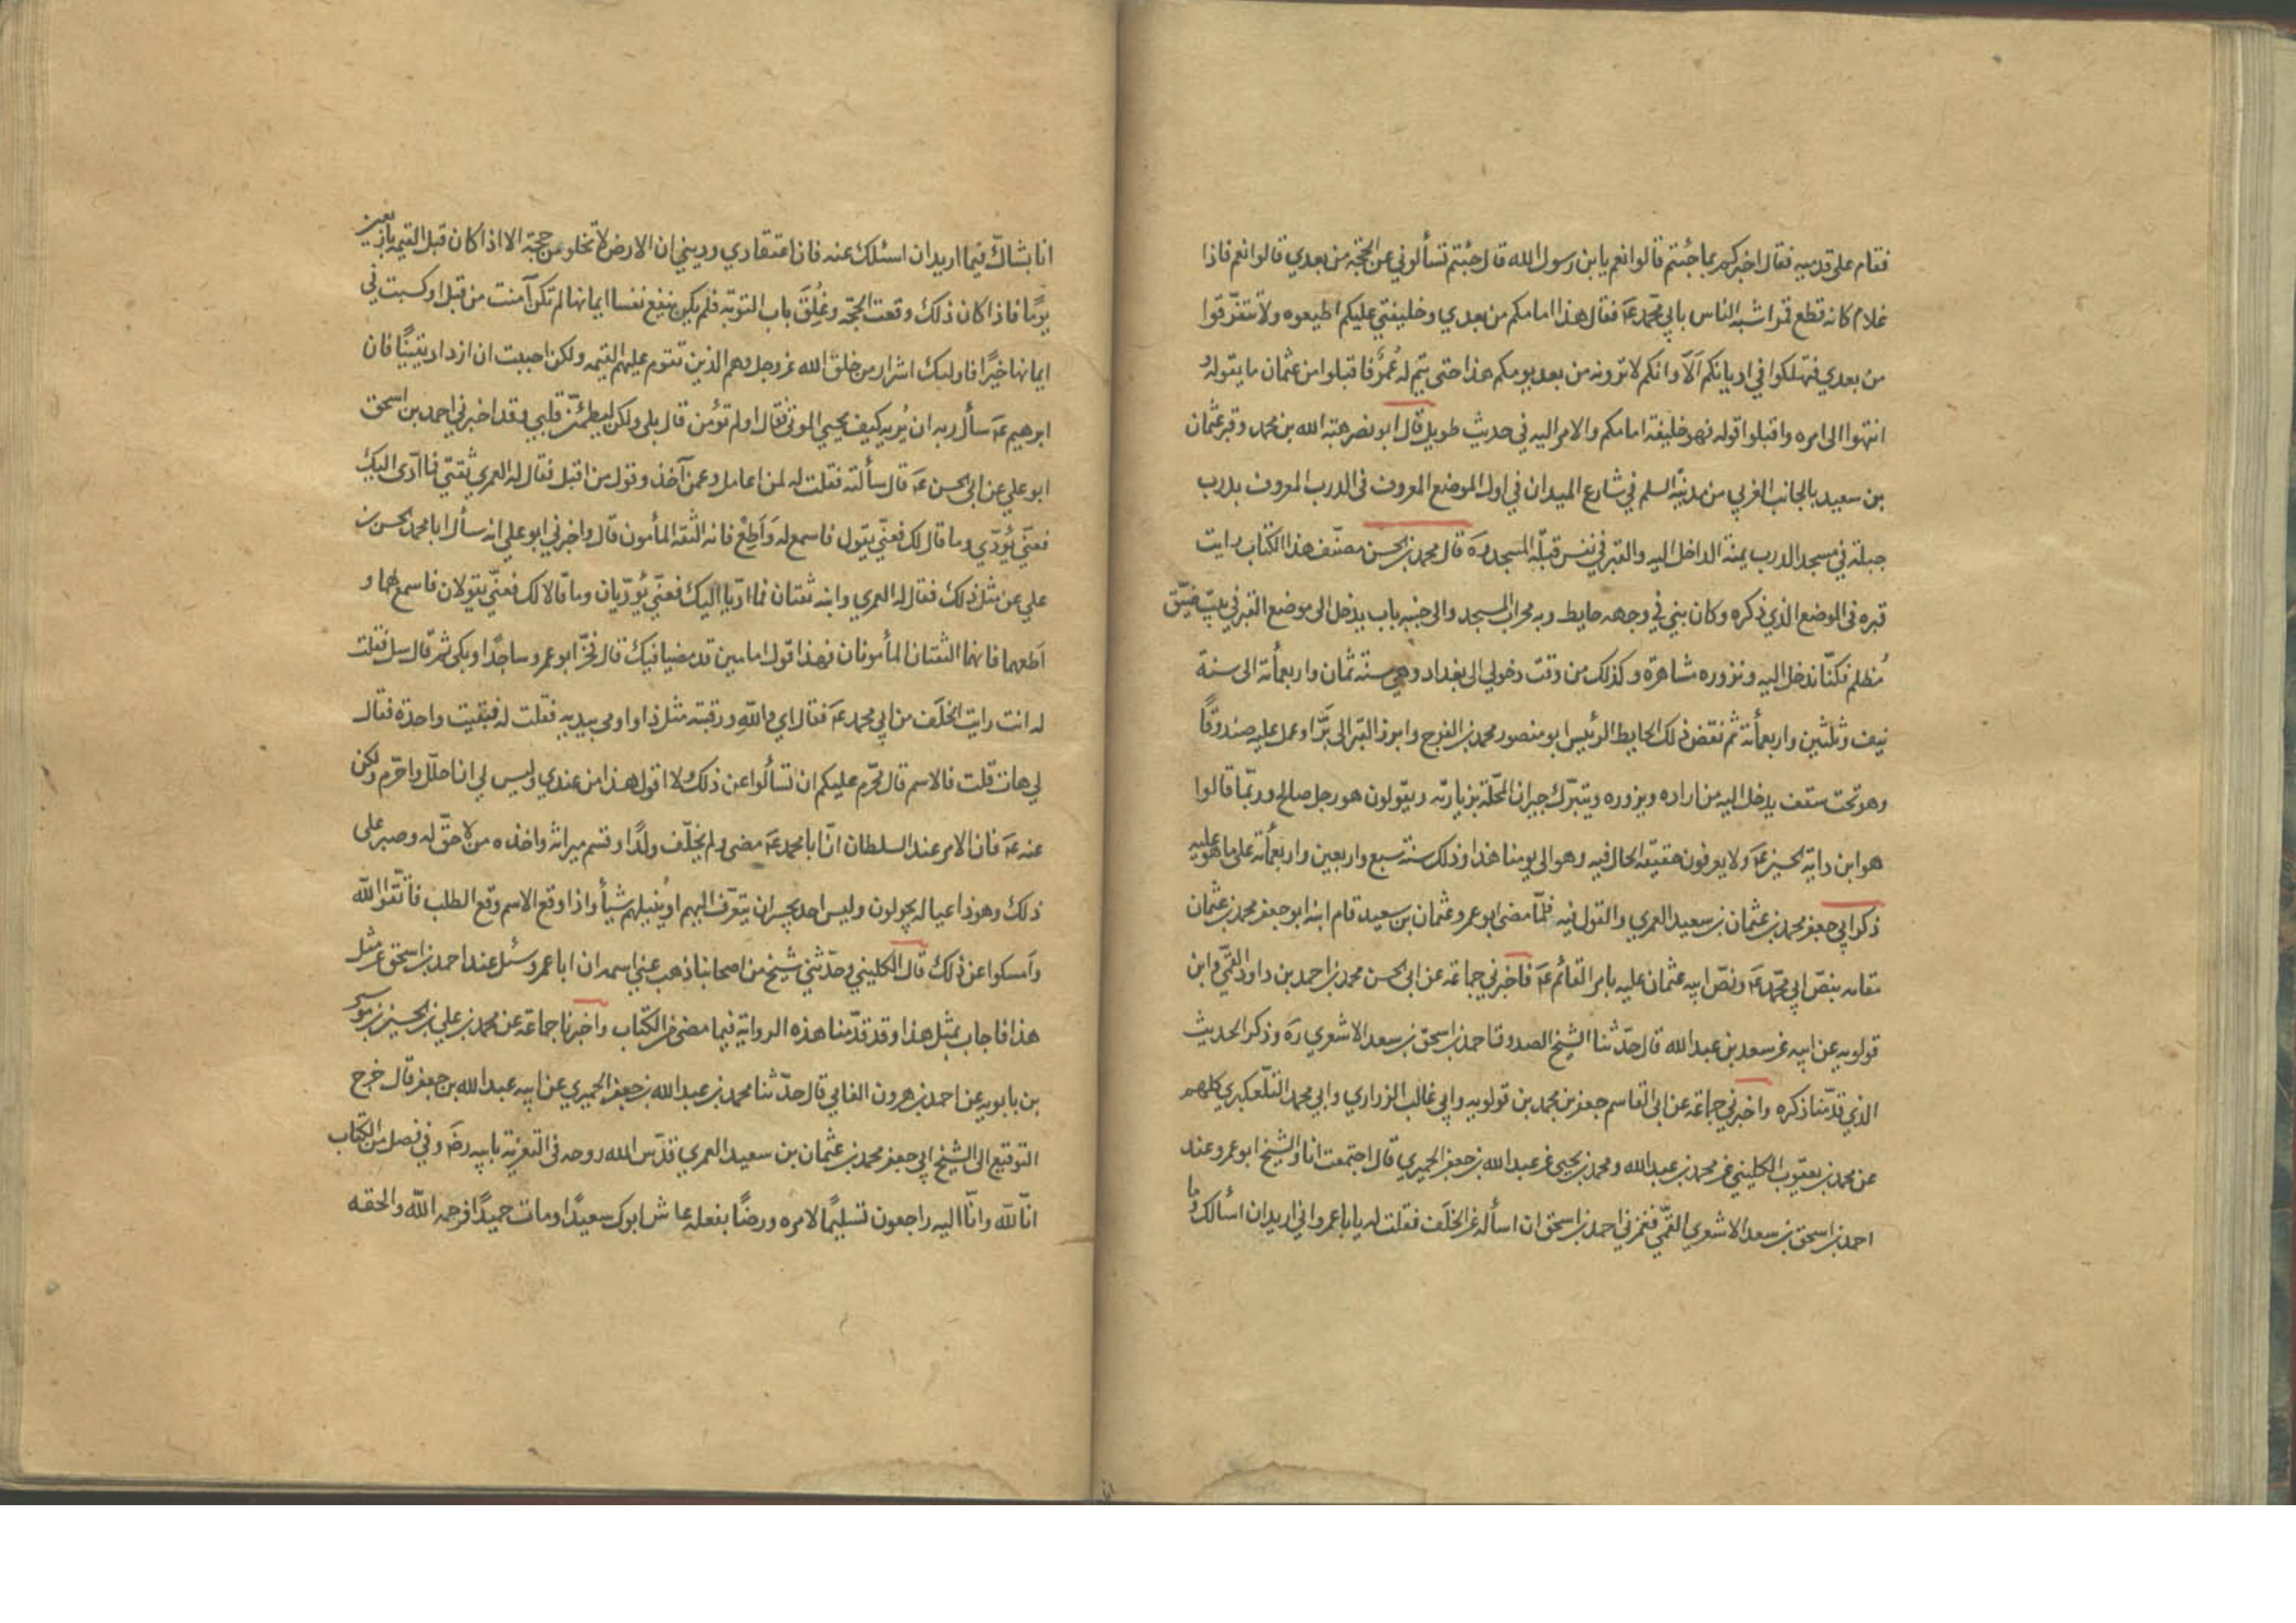 فقام على قدميه فقال اخبركم بما جئتم قالوا نعم يا بن رسول الله قال جئتم تسألوني عن الحجة من بعدي قالوا نعم فاذا
غلام كانه قطع قمر اشبه الناس بابي محمد عَ فقال هذا امامكم من بعدي وخليفتي عليكم اطيعوه ولا تتفرّقوا
من بعدي فتهلكوا في اديانكم اَلا وانكم لا ترونه من بعد يومكم هذا حتى يتم له عُمُرٌ فاقبلوا من عثمان ما يقوله و
انتهوا الى امره واقبلوا قوله فهو خليفة امامكم والامر اليه في حديث طويل قال ابو نصر هبة الله بن محمد وقبر عثمان
بن سعيد بالجانب الغربي من مدينة السلم في شارع الميدان في اول الموضع المعروف في الدرب المعروف بدرب
جبلة في مسجد الدرب يمنة الداخل اليه والقبر في نفس قبلة المسجد رَه قال محمد بن الحسن مصنّف هذا الكتاب رايت
قبره في الموضع الذي ذكره وكان بني في وجهه حايط وبه محراب المسجد والى جنبه باب يدخل الى موضع القبر في بيت ضيّق
مُظلم فكنّا ندخل اليه ونزوره مشاهرة وكذلك من وقت دخولي الى بغداد وهي سنة ثمان واربعمأئة الى سنة
نيف وثلثين واربعمأئة ثم نقض ذلك الحايط الرئيس ابو منصور محمد بن الفرج وابرز القبر الى بَرَّا وعمل عليه صندوقًا
وهو تحت سقف يدخل اليه من اراده ويزوره ويتبرّك جيران المحلّة بزيارته ويقولون هو رجل صالح وربّما قالوا
هو ابن داية الحسين عَ ولا يعرفون حقيقة الحال فيه وهو الى يومنا هذا وذلك سنة سبع واربعين واربعمأئة على ما هو عليه
ذكر ابي جعفر محمد بن عثمان بن سعيد العمري والقول فيه فلمّا مضى ابو عمرو عثمان بن سعيد قام ابنه ابو جعفر محمد بن عثمان
مقامه بنصّ ابي محمّد عَ ونصّ ابيه عثمان عليه بامر القائم عَ فاخبرني جماعة عن ابى الحسن محمد بن احمد بن داود القمّي وابن
قولويه عن ابيه عن سعد بن عبد الله قال حدّثنا الشيخ الصدوق احمد بن اسحق بن سعد الاشعري رَه وذكر الحديث
الذي قدّمنا ذكره واخبرني جماعة عن ابى القاسم جعفر بن محمد بن قولويه وابي غالب الزراري وابي محمد التلّعكبري كلهم
عن محمد بن يعقوب الكليني عن محمد بن عبد الله ومحمد بن يحيى عن عبد الله بن جعفر الحميري قال اجتمعت انا والشيخ ابو عمرو عند
احمد بن اسحق بن سعد الاشعري القمّي فغمزني احمد بن اسحق ان اسأله عن الخلَف فقلت له يا با عمرو اني اريد ان اسألك وما
انا بشاكّ فيما اريد ان اسئلك عنه فان اعتقادي وديني ان الارض لا تخلو من حجة الا اذا كان قبل القيمة باربعين
يومًا فاذا كان ذلك وقعت الحجّة وغُلِقَ باب التوبة فلم يكن ينفع نفسا ايمانها لم تكن آمنت من قبل او كسبت في
ايمانها خيرًا فاولئك اشرار من خلق الله عز وجل وهم الذين تقوم عليهم القيمة ولكن احببت ان ازداد يقينًا فان
ابرهيم عَ سأل ربه ان يُريه كيف يحيي الموتى فقال اولم تؤمن قال بلى ولكن ليطمئنّ قلبي وقد اخبرني احمد بن اسحق
ابو علي عن ابى الحسن عَ قال سألته فقلت له لمن اعامل وعمن آخذ وقول من اقبل فقال له العمري ثقتي فما ادّى اليك
فعنّي يُؤدّي وما قال لك فعنّي يقول فاسمع له وَاَطِعْ فانه الثقة المأمون قال واخبرني ابو علي انه سأل ابا محمد الحسن بن
علي عن مثل ذلك فقال له العمري وابنه ثقتان فما ادّيا اليك فعنّي يُؤدّيان وما قالا لك فعنّي يقولان فاسمع لهما و
اَطعهما فانهما الثقتان المأمونان فهذا قول امامين قد مضيا فيك قال فخرّ ابو عمرو ساجدًا وبكى ثم قال سل فقلت
له انت رايت الخلَف من ابي محمد عَ فقال اي والله ورقبته مثل ذا واومى بيديه فقلت له فبقيت واحدة فقال
لي هات قلت فالاسم قال محرّم عليكم ان تسألوا عن ذلك ولا اقول هذا من عندي وليس لي ان احلّل واحرّم ولكن
عنه عَ فان الامر عند السلطان انّ ابا محمد عَ مضى ولم يخلّف ولدًا وقسم ميراثه واخذه من لا حقّ له وصبر على
ذلك وهوذا عياله يجولون وليس احد يجسر ان يتعرّف اليهم او يُنيلهم شيأ واذا وقع الاسم وقع الطلب فاتّقوا الله
وامسكوا عن ذلك قال الكليني وحدّثني شيخ من اصحابنا ذهب عني اسمه ان ابا عمرو سئل عند احمد بن اسحق عن مثل
هذا فاجاب بمثل هذا وقد قدّمنا هذه الرواية فيما مضى من الكتاب واخبرنا جماعة عن محمد بن علي بن الحسين بن موسى
بن بابويه عن احمد بن هرون الفامي قال حدّثنا محمد بن عبد الله بن جعفر الحميري عن ابيه عبد الله بن جعفر قال خرج
التوقيع الى الشيخ ابي جعفر محمد بن عثمان بن سعيد العمري قدّس الله روحه في التعزية بابيه رضَ وفي فصل من الكتاب
انّا لله وانّا اليه راجعون تسليمًا لامره ورضًا بفعله عاش ابوك سعيدًا ومات حميدًا فرحمه الله والحقه